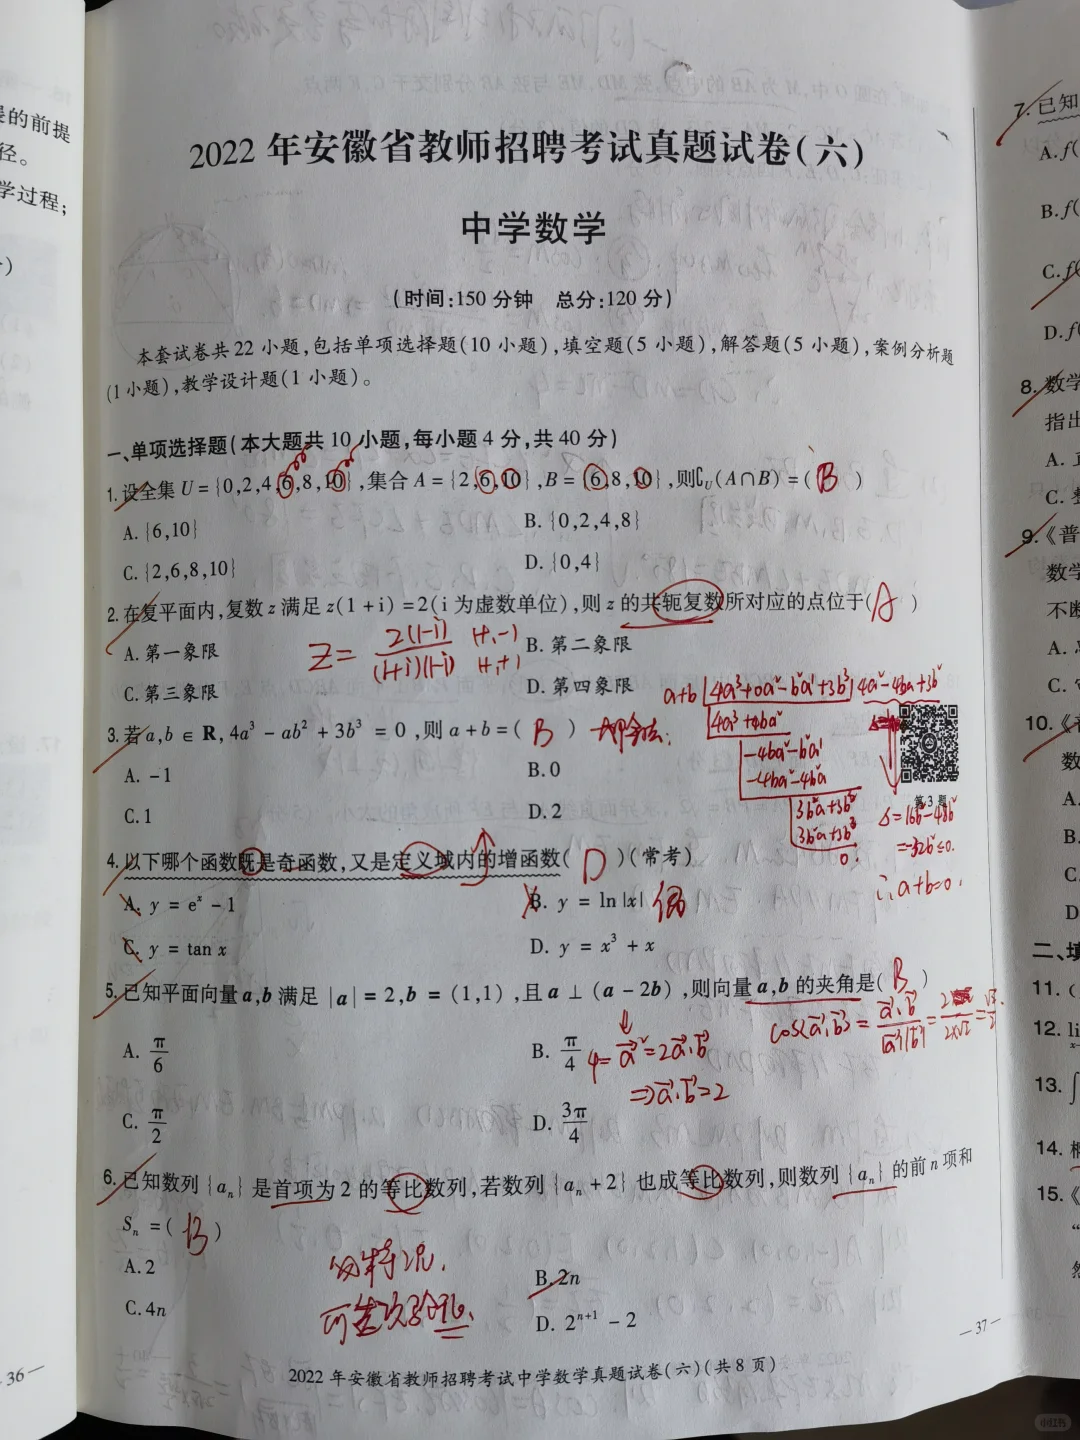 是的前提
径。
学过程；
2022年安徽省教师招聘考试真题试卷(六)
中学数学
(时间:150分钟 总分:120分)
本套试卷共22小题,包括单项选择题(10小题),填空题(5小题),解答题(5小题),案例分析题
(1小题),教学设计题(1小题)。
一、单项选择题(本大题共10小题,每小题4分,共40分)
1.设全集U={0,2,4,6,8,10},集合A={2,6,10},B={6,8,10},则∁U(A∩B)=( B )
A.{6,10} B.{0,2,4,8}
C.{2,6,8,10} D.{0,4}
2.在复平面内,复数z满足z(1+i)=2(i为虚数单位),则z的共轭复数所对应的点位于( A )
A.第一象限 B.第二象限
C.第三象限 D.第四象限
Z=2(1-i)/(1+i)(1-i)
3.若a,b∈R,4a³-ab²+3b³=0,则a+b=( B )
A.-1 B.0
C.1 D.2
a+b
4a³+0a²-b²a+3b³
4a²-4ba+3b²
4a³+4ba²
-4ba²-b²a
-4ba²-4b²a
3b²a+3b³
3b²a+3b³
0
第3题
Δ=16b²-48b²
=-32b²≤0.
∴a+b=0.
4.以下哪个函数既是奇函数,又是定义域内的增函数( D )(常考)
A. y=eˣ-1 B. y=ln|x| 偶
C. y=tan x D. y=x³+x
5.已知平面向量a,b满足|a|=2,b=(1,1),且a⊥(a-2b),则向量a,b的夹角是( B )
A. π/6 B. π/4
C. π/2 D. 3π/4
4=a²=2a·b
⇒a·b=2
6.已知数列{aₙ}是首项为2的等比数列,若数列{aₙ+2}也成等比数列,则数列{aₙ}的前n项和
Sₙ=( B )
A.2 B.2n
C.4n D. 2ⁿ⁺¹-2
2022年安徽省教师招聘考试中学数学真题试卷(六)(共8页)
—37—
36—
7.已知
A.f(
B.f(
C.f(
D.f(
8.数学
指出
A.
C.
9.《普
数学
不断
A.
C.
10.《
数
A.
B.
C.
D
二、填
11.(
12.lim
13.∫
14.
15.《
小红书